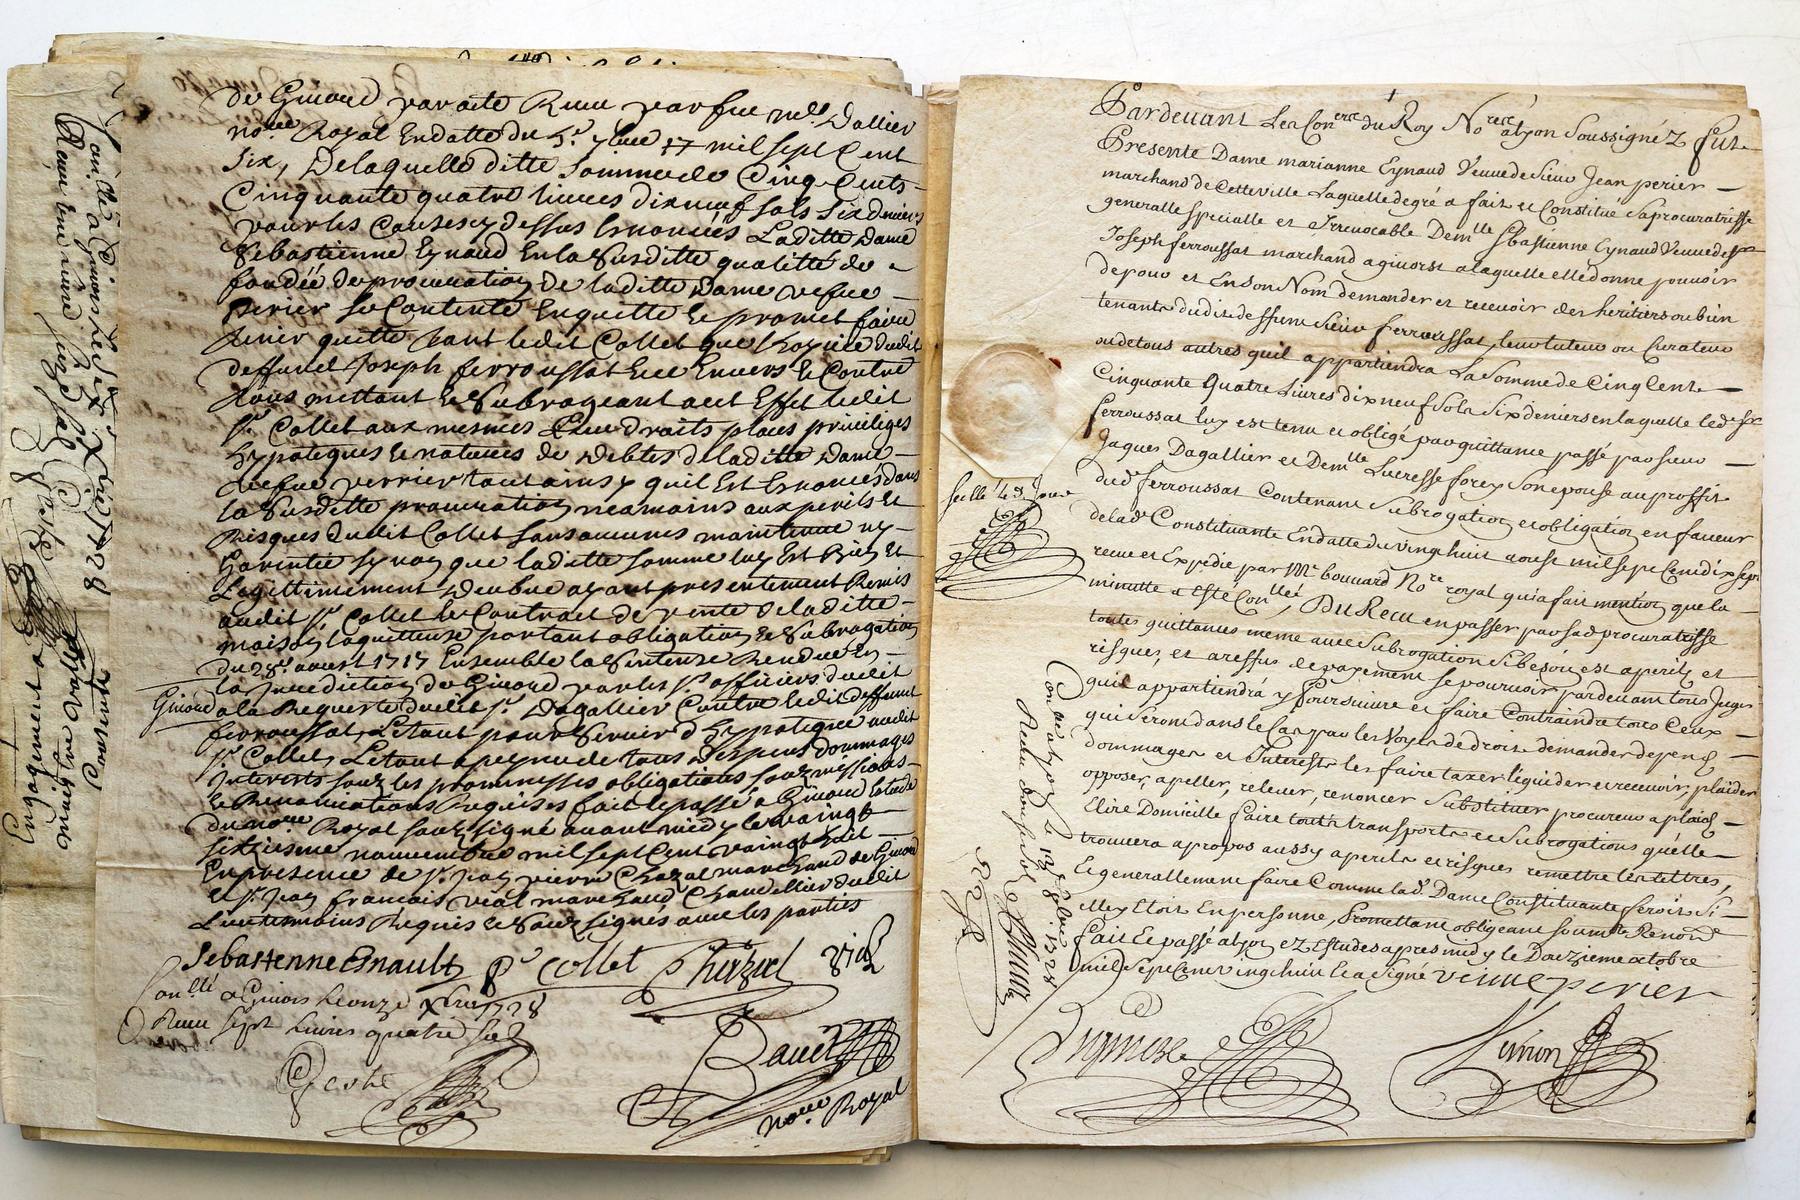 de Givord par acte Receu par feu me. Dallier
nore. Royal En datte du 5e. 7bre 17 mil sept Cent
six, De laquelle ditte Somme de Cinq Cents
Cinquante quatre livres dixneuf sols Six deniers
pour les Causes cy dessus Enoncées Laditte Dame
Sebastienne Eynaud En la Susditte qualitté de
fondée de procuration de laditte Dame vefue
perier se Contente En quitte Et promet faire
tenir quitte tant ledit Collet que l'hoyrie dudit
deffunct Joseph ferroussat Ene Envers Et Contre
tous mettant Et Subrogeant a cet Effet ledit
sr. Collet aux mesmes Lieu droits places priviliges
hypoteques Et natures de debtes de laditte Dame
vefue perrier tout ainsy quil Est Enoncés dans
la Susditte procuration neamoins aux perils Et
Risques dudit Collet sans aucunes maintenue ny
Garentie synon que laditte somme luy Est Bien Et
Legittimement Deubue ayant presentement Remis
audit sr. Collet Le Contract de vente de laditte
maison laquittense portant obligation Et Subrogation
du 28e. aoust 1717 Ensemble la Sentense Rendue En
la Jurediction de Givord par les srs officiers dudit
Givord a la Requette dudit sr. Dagallier Contre ledit deffunct
ferroussat, Le tout pour Servir d'hypoteque audit
sr. Collet, Le tout a peyne de tous despens dommages
Interests sous les promesses obligations soubzmissions
Et Renonciations Requises fait Et passé a Givord Estude
du nore. Royal soubz signé avant midy le vaingt
sixiesme novembre mil sept Cent vaingt huit
En presence de sr. Jean pierre Chazal marchand de Givord
et sr. Jean francois vial marchand Chandellier dudit
Lieu temoins Requis Et Soubz signés avec les parties
Sebastienne Esnault pe Collet Chazal Vial
Conllé a Givors Le onze xbre 1728
Receu sept livres quatre sols
Geste
Bauet
nore Royal
Conllé a Givors Le
1728
Engagement a
Pardevant Les Coners du Roy Nores a Lyon Soussignéz fut
Presente Dame marianne Eynaud Veuve de Sieur Jean perier
marchand de Cette ville Laquelle de gré a fait et Constitué Sa procuratrisse
generalle specialle et Irrevocable Demlle Sbastienne Eynaud Veuve de sr
Joseph ferroussat marchand a givorst a laquelle elle donne pouvoir
de pour et En Son Nom demander et recevoir des heritiers ou bien
tenants dudit deffunt Sieur ferroussat, leur tuteur ou Curateur
ou de tous autres quil appartiendra La Somme de Cinq Cent
Cinquante Quatre Livres dix neuf Sols Six deniers en laquelle led. sr
ferroussat luy est tenu et obligé par quittance passé par sieur
Jaques Dagallier et Demlle Lucresse forey Son epouse au proffit
dud. ferroussat Contenant Subrogation et obligation en faveur
de lade Constituante En datte du vingt huit aouse mil sept Cent dix sept
receu et Expedié par Me bouuard Nore royal qui a fait mention que la
minutte a Esté Conllée, Du Receu en passer par sad. procuratrisse
toutes quittances meme avec Subrogation Si besoin est a perils et
risques, et a reffus de payement se pourvoir pardevant tous Juges
quil appartiendrá y Poursuivre et faire Contraindre tous Ceux
qui Seront dans le Cas par les Voyes de droit demander depens
dommages et Interests les faire taxer liquider et recevoir, plaider
opposer, apeller, relever, renoncer Substituer procureur a plaids
Elire Domicille faire toutes transports et Subrogations qu'elle
trouvera a propos aussy a perils et risques remettre les tittres,
Et generallement faire Comme lad. Dame Constituante feroit Si
elle y Etoit En personne, Promettant obligeant soumts Renond
fait Et passé a Lyon ez Estudes apres midy le Douzieme octobre
mil Sept Cent vingt huit Et a Signé veuve perier
Scellé led. Jour
Con. a Lyon Le 12e 8bre 1728
Receu douze sols
Simon